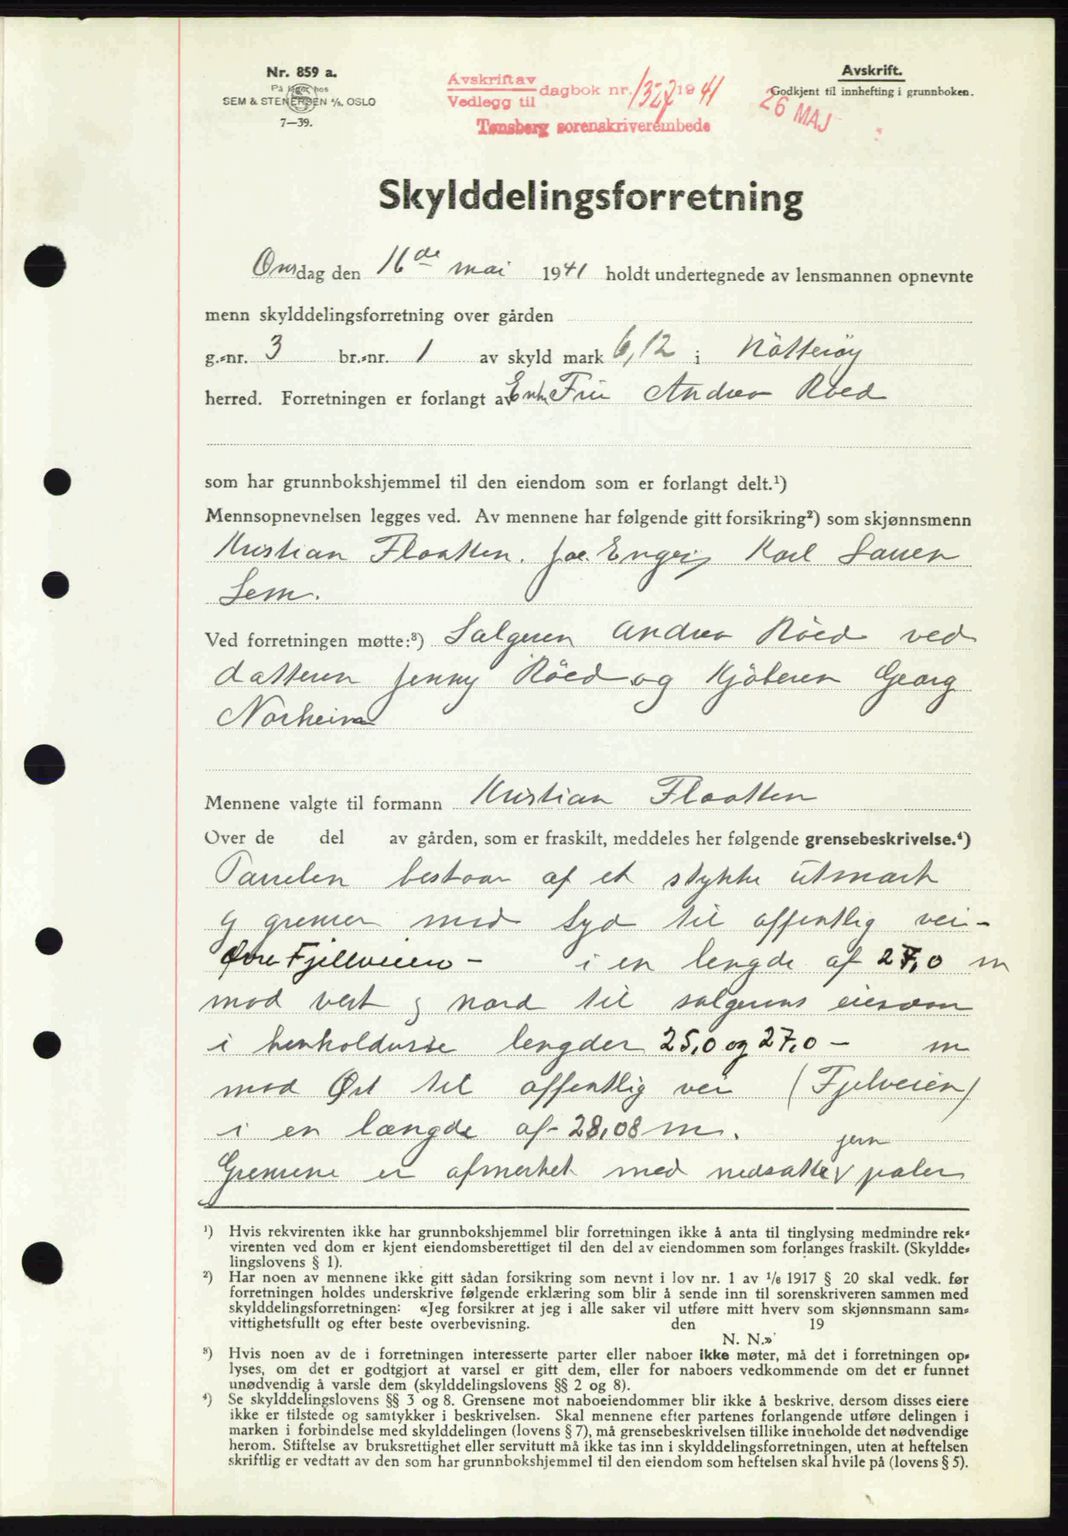 Nr. 859 a.
På lager hos
SEM & STENERSEN A/S, OSLO
7—39.
Avskrift av
Vedlegg til
dagbok nr. 1327 1941
Tønsberg sorenskriverembede
Avskrift.
Godkjent til innhefting i grunnboken.
26 MAJ
Skylddelingsforretning
Onsdag den 16de mai 1941 holdt undertegnede av lensmannen opnevnte
menn skylddelingsforretning over gården
g.-nr. 3 br.-nr. 1 av skyld mark 6,12 i Nötteröy
herred. Forretningen er forlangt av Enke Fru Andrea Röed
som har grunnbokshjemmel til den eiendom som er forlangt delt.¹)
Mennsopnevnelsen legges ved. Av mennene har følgende gitt forsikring²) som skjønnsmenn
Kristian Flaatten. Joe. Karl Sauen
Sem.
Ved forretningen møtte:³) Salgeren Andrea Röed ved
datteren Jenny Röed og Kjöberen Georg
Norheim
Mennene valgte til formann Kristian Flaatten
Over de del av gården, som er fraskilt, meddeles her følgende grensebeskrivelse.⁴)
Parselen bestaar af et stykke utmark
og grenser mod Syd til offentlig vei -
Øvre Fjellveien - i en lengde af 27,0 m
mod vest og nord til salgerens eiendom
i henholdsvise lengder 25,0 og 27,0 - m
mod Øst til offentlig vei (Fjelveien)
i en længde af 28,08 m.
jern
Grensene er afmerket med nedsatte V paler
¹) Hvis rekvirenten ikke har grunnbokshjemmel blir forretningen ikke å anta til tinglysing medmindre rek-
virenten ved dom er kjent eiendomsberettiget til den del av eiendommen som forlanges fraskilt. (Skyldde-
lingslovens § 1).
²) Har noen av mennene ikke gitt sådan forsikring som nevnt i lov nr. 1 av 1/6 1917 § 20 skal vedk. før
forretningen holdes underskrive følgende erklæring som blir å sende inn til sorenskriveren sammen med
skylddelingsforretningen: «Jeg forsikrer at jeg i alle saker vil utføre mitt hverv som skjønnsmann sam-
vittighetsfullt og efter beste overbevisning. den 19
N. N.»
³) Hvis noen av de i forretningen interesserte parter eller naboer ikke møter, må det i forretningen op-
lyses, om det er godtgjort at varsel er gitt dem, eller for naboers vedkommende om det er funnet
unødvendig å varsle dem (skylddelingslovens §§ 2 og 8).
⁴) Se skylddelingslovens §§ 3 og 8. Grensene mot naboeiendommer blir ikke å beskrive, dersom disses eiere
ikke er tilstede og samtykker i beskrivelsen. Skal mennene efter partenes forlangende utføre delingen i
marken i forbindelse med skylddelingen (lovens § 7), må grensebeskrivelsen tillike inneholde det nødvendige
herom. Stiftelse av bruksrettighet eller servitutt må ikke tas inn i skylddelingsforretningen, uten at heftelsen
skriftlig er vedtatt av den som har grunnbokshjemmel til den eiendom som heftelsen skal hvile på (lovens § 5).